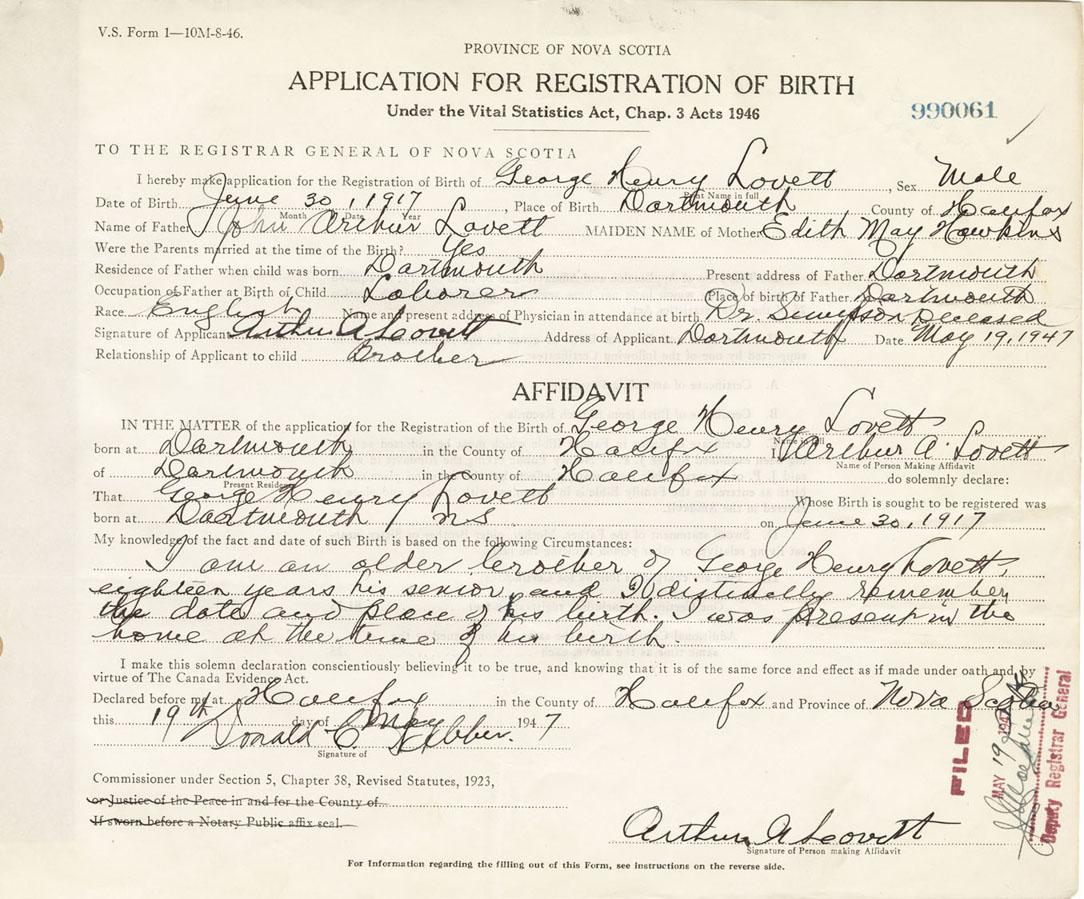 V.S. Form 1—10M-8-46.
PROVINCE OF NOVA SCOTIA
APPLICATION FOR REGISTRATION OF BIRTH
990061
Under the Vital Statistics Act, Chap. 3 Acts 1946
TO THE REGISTRAR GENERAL OF NOVA SCOTIA
I hereby make application for the Registration of Birth of George Henry Lovett, Sex Male
Print Name in full
Date of Birth June 30, 1917, Place of Birth Dartmouth County of Halifax
Month Date Year
Name of Father John Arthur Lovett MAIDEN NAME of Mother Edith May Hawkins
Were the Parents married at the time of the Birth? Yes
Residence of Father when child was born Dartmouth Present address of Father Dartmouth
Occupation of Father at Birth of Child Laborer Place of birth of Father Dartmouth
Race English Name and present address of Physician in attendance at birth Dr. Deceased
Signature of Applicant Arthur A Lovett Address of Applicant Dartmouth Date May 19, 1947
Relationship of Applicant to child Brother
AFFIDAVIT
IN THE MATTER of the application for the Registration of the Birth of George Henry Lovett
Name in full
born at Dartmouth in the County of Halifax I Arthur A. Lovett
Name of Person Making Affidavit
of Dartmouth in the County of Halifax do solemnly declare:
Present Residence
That George Henry Lovett Whose Birth is sought to be registered was
born at Dartmouth NS on June 30, 1917
My knowledge of the fact and date of such Birth is based on the following Circumstances:
I am an older brother of George Henry Lovett,
eighteen years his senior, and I distinctly remember
the date and place of his birth. I was present in the
home at the time of his birth
I make this solemn declaration conscientiously believing it to be true, and knowing that it is of the same force and effect as if made under oath and by
virtue of The Canada Evidence Act.
Declared before me at Halifax in the County of Halifax and Province of Nova Scotia
this 19th day of May 1947
Donald C.
Signature of
Commissioner under Section 5, Chapter 38, Revised Statutes, 1923,
or Justice of the Peace in and for the County of
If sworn before a Notary Public affix seal.
FILED
MAY 19 1947
Deputy Registrar General
Arthur A Lovett
Signature of Person making Affidavit
For Information regarding the filling out of this Form, see instructions on the reverse side.